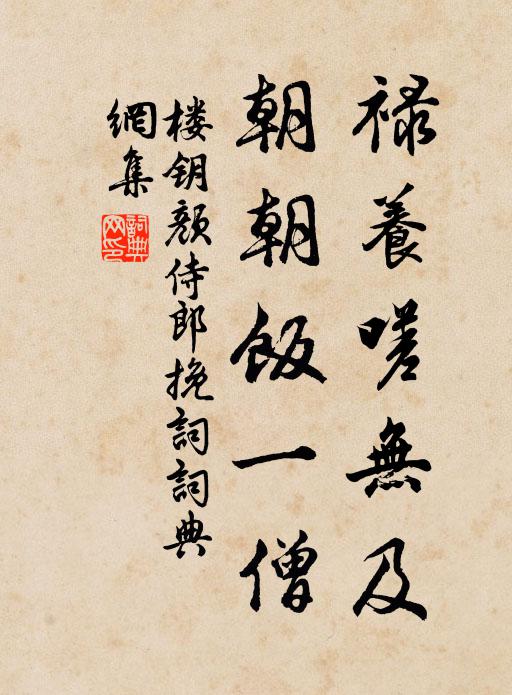 禄養嗟無及
朝朝飯一僧
楼钥顔侍郎挽詞詞典
網集
詞典
网印